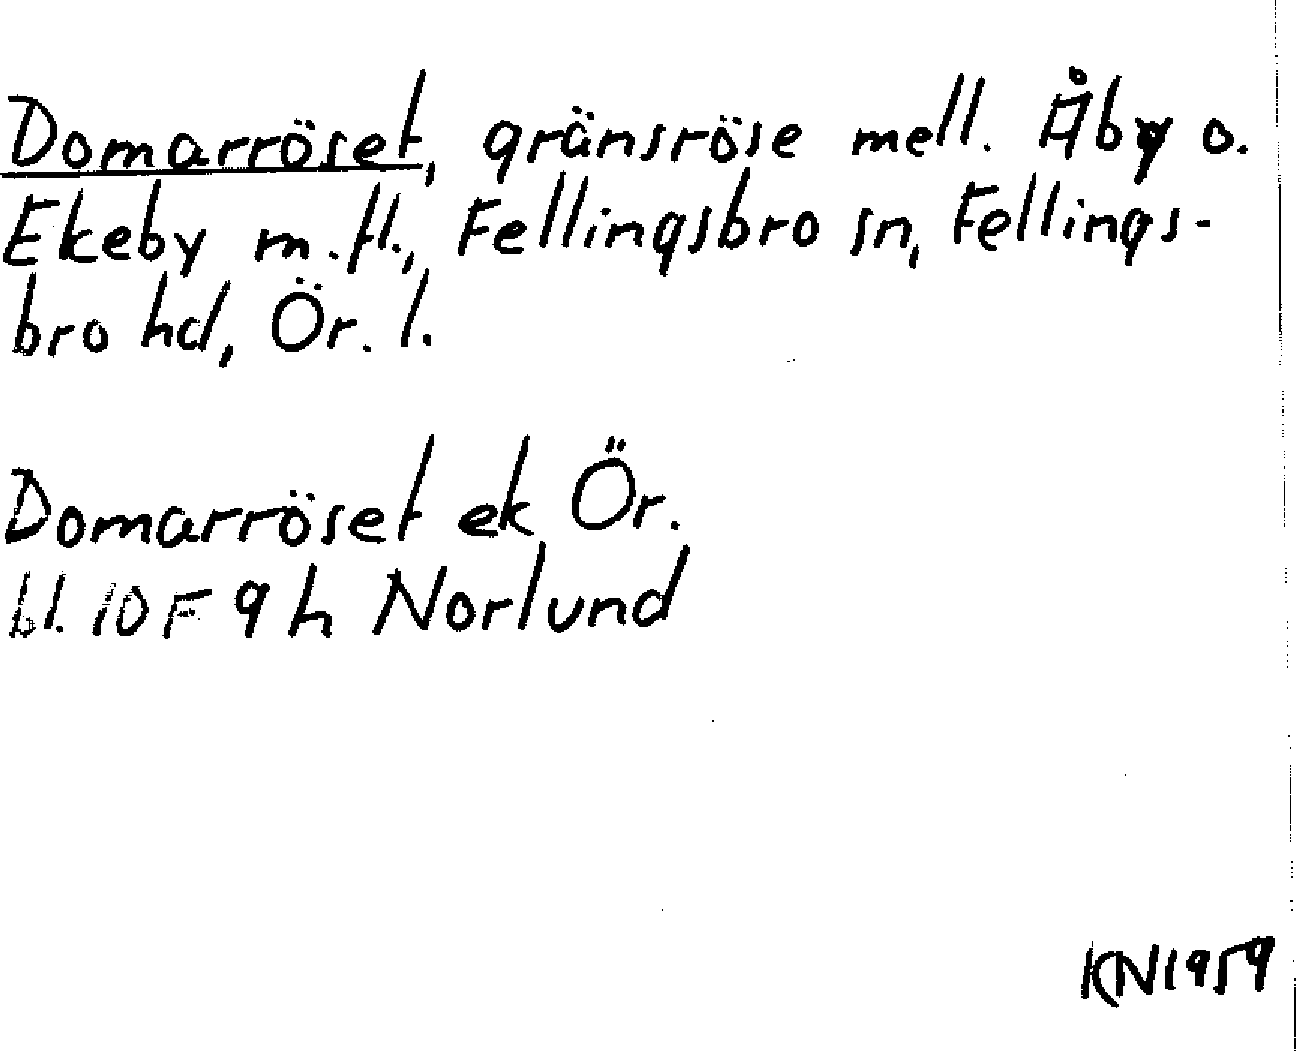 Domarröset, gränsröse mell. Åby o.
Ekeby m.fl., Fellingsbro sn, Fellings-
bro hd, Ör. l.
Domarröset ek Ör.
bl. 10F 9h Norlund
KN1959